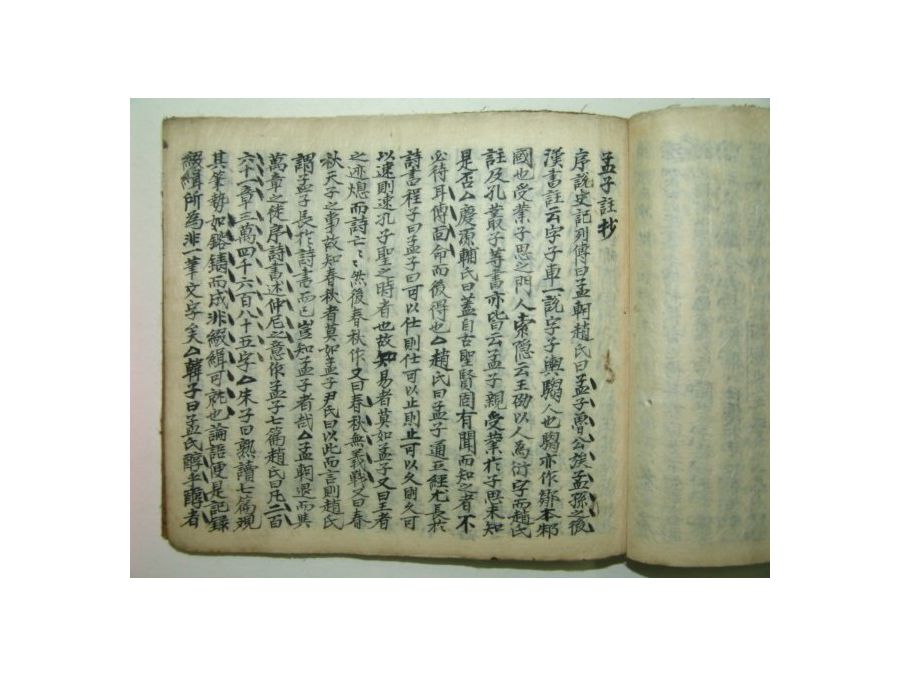 孟子註抄
序說史記列傳曰孟軻趙氏曰孟子魯公族孟孫之後
漢書註云字子車一說字子輿騶人也騶亦作鄒本邾
國也受業子思之門人索隱云王劭以人爲衍字而趙氏
註及孔叢子等書亦皆云孟子親受業於子思未知
是否△慶源輔氏曰盖自古聖賢固有聞而知之者不
必待耳傳面命而後得也△趙氏曰孟子通五經尤長於
詩書程子曰孟子曰可以仕則仕可以止則止可以久則久可
以速則速孔子聖之時者也故知易者莫如孟子又曰王者
之迹熄而詩亡〻然後春秋作又曰春秋無義戰又曰春
秋天子之事故知春秋者莫如孟子尹氏曰以此而言則趙氏
謂孟子長於詩書而已豈知孟子者哉△孟軻退而與
萬章之徒序詩書述仲尼之意作孟子七篇趙氏曰凡二百
六十一章三萬四千六百八十五字△朱子曰熟讀七篇觀
其筆勢如鎔鑄而成非綴緝可就也論語便是記錄
綴緝所為非一筆文字矣△韓子曰孟氏醇乎醇者